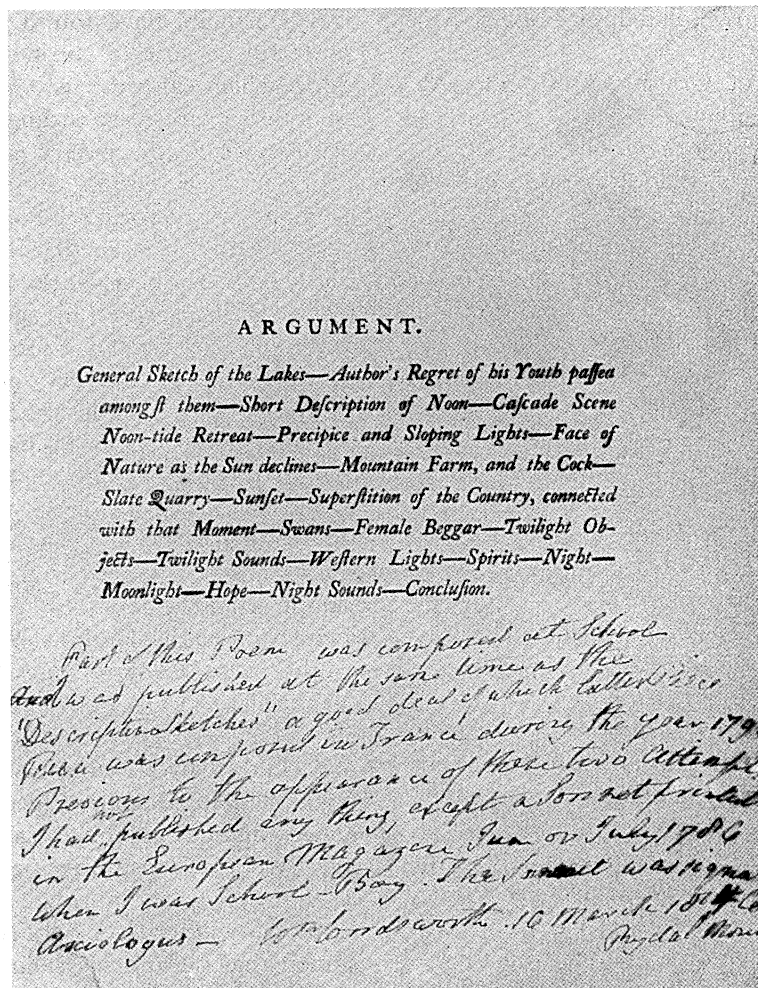 ARGUMENT.
General Sketch of the Lakes—Author's Regret of his Youth paſſed
amongſt them—Short Deſcription of Noon—Caſcade Scene
Noon-tide Retreat—Precipice and Sloping Lights—Face of
Nature as the Sun declines—Mountain Farm, and the Cock—
Slate Quarry—Sunſet—Superſtition of the Country, connected
with that Moment—Swans—Female Beggar—Twilight Ob-
jects—Twilight Sounds—Weſtern Lights—Spirits—Night—
Moonlight—Hope—Night Sounds—Concluſion.
Part of this Poem was composed at School
And was published at the same time as the
"Descriptive Sketches" a good deal of which latter
was composed in France during the year 179
Previous to the appearance of these two attempts
I had not published any thing, except a Sonnet printed
in the European Magazine June or July 1786
when I was School-Boy. The Sonnet was signed
Axiologus— Wm Wordsworth. 16 March
Rydal Mount